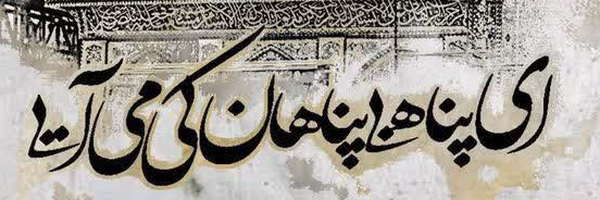 ای پناه بی پناهان کی می آیی